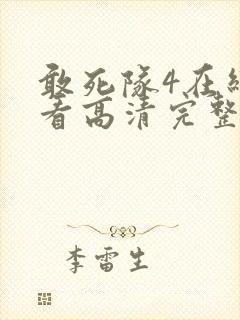 敢死隊4在線
看高清完整
李雷生